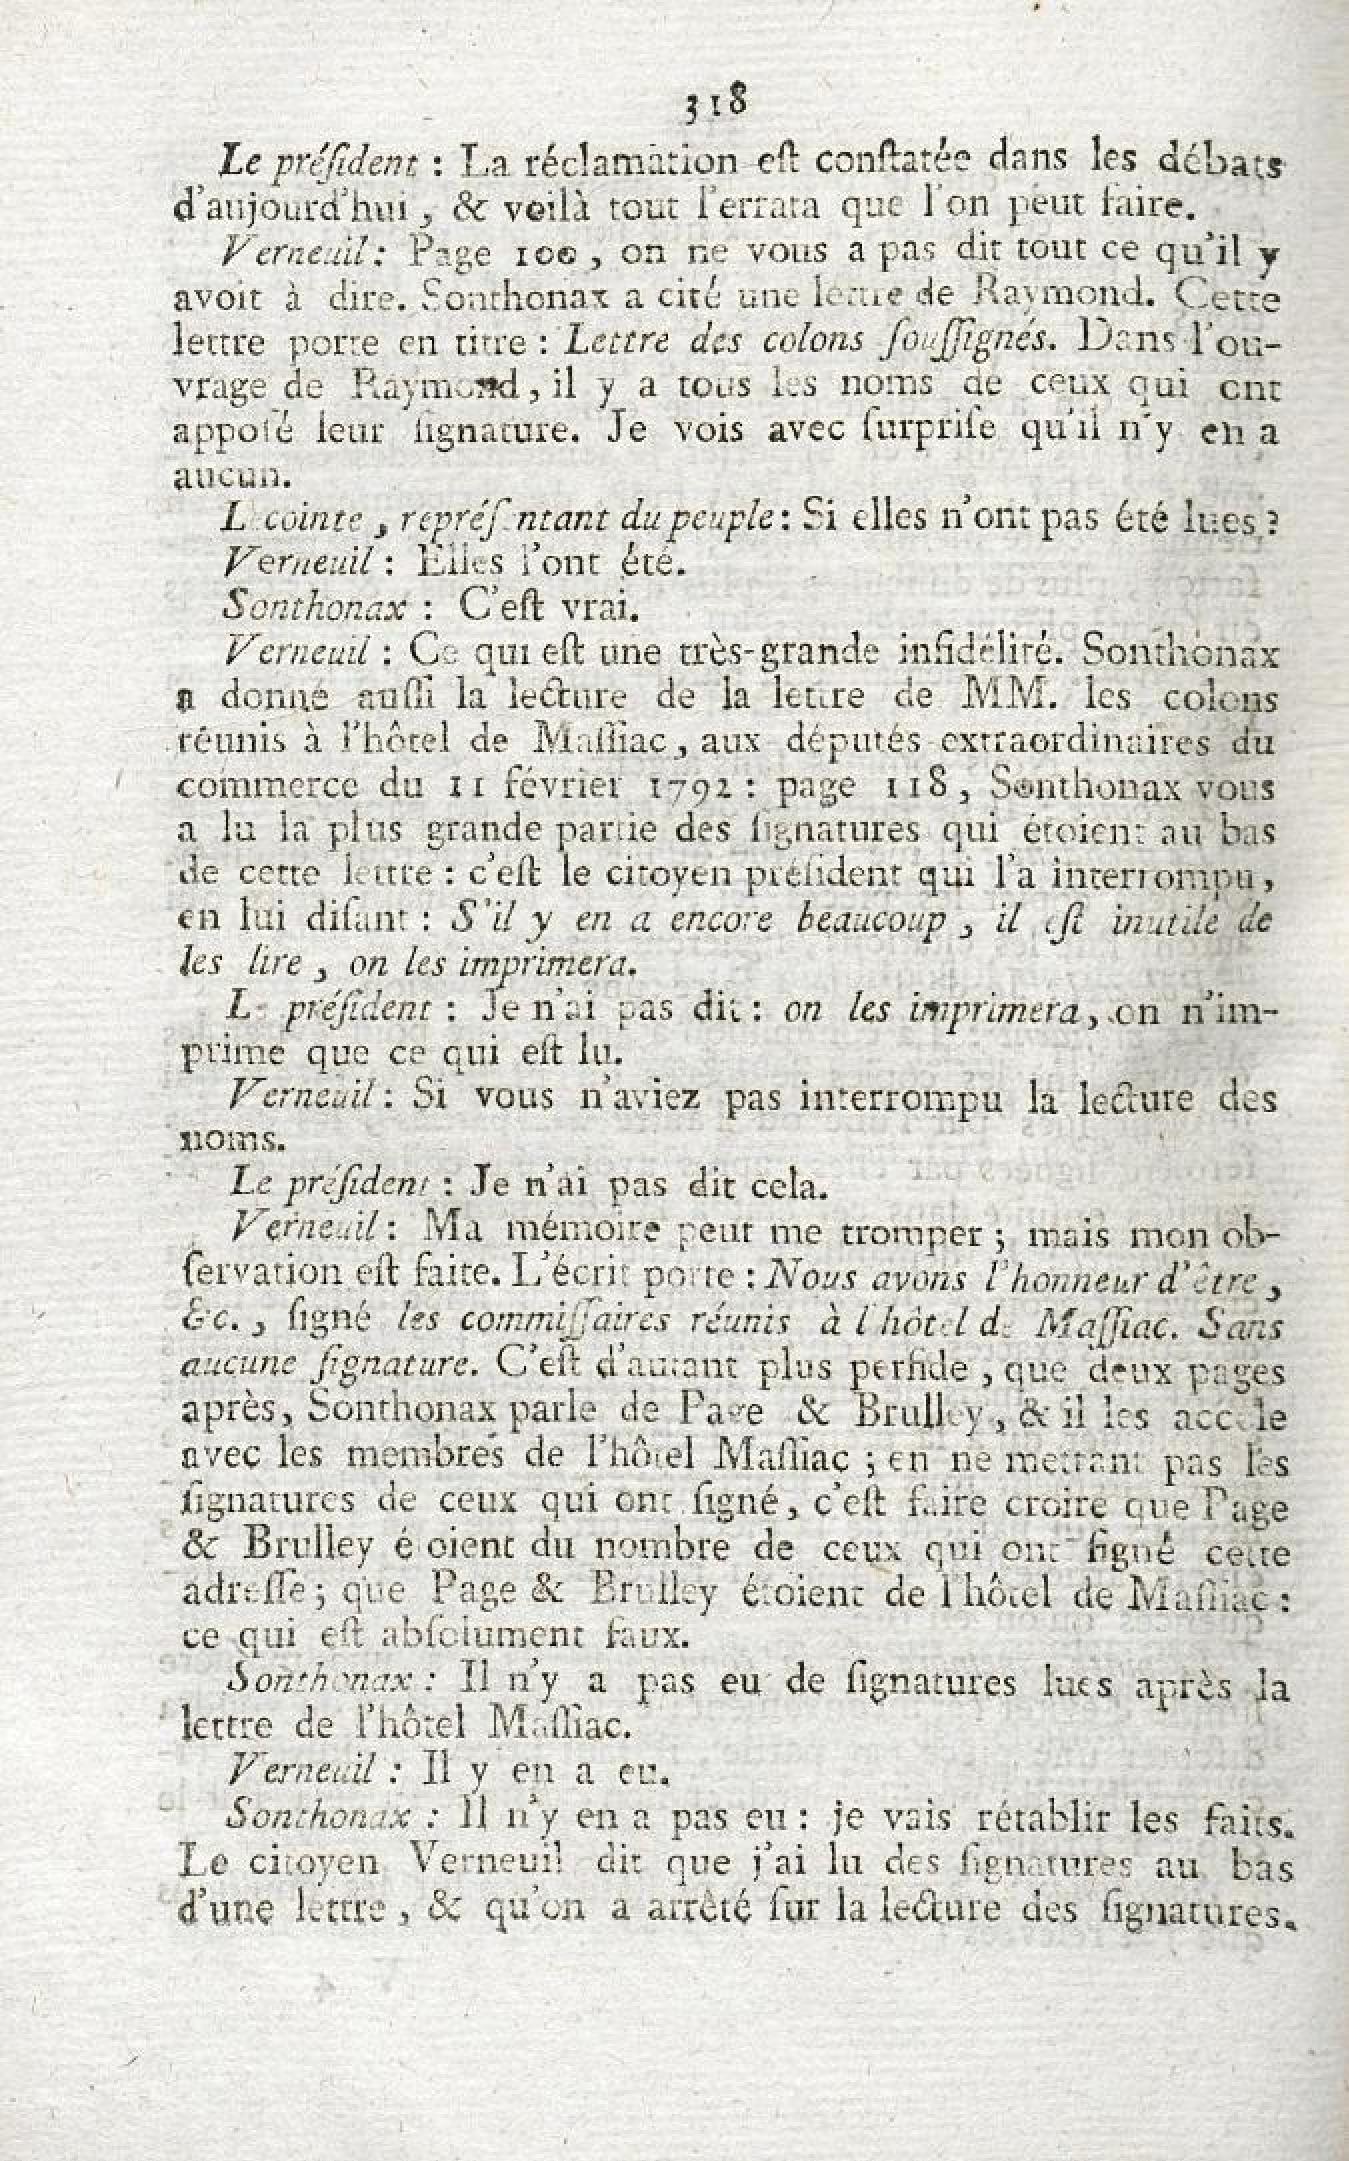 318
Le préſident : La réclamation eſt conſtatée dans les débats
d'aujourd'hui, & voilà tout l'errata que l'on peut faire.
Verneuil : Page 100, on ne vous a pas dit tout ce qu'il y
avoit à dire. Sonthonax a cité une lettre de Raymond. Cette
lettre porte en titre : Lettre des colons ſouſſignés. Dans l'ou-
vrage de Raymond, il y a tous les noms de ceux qui ont
appoſé leur ſignature. Je vois avec ſurpriſe qu'il n'y en a
aucun.
Lecointe, repréſentant du peuple : Si elles n'ont pas été lues ?
Verneuil : Elles l'ont été.
Sonthonax : C'eſt vrai.
Verneuil : Ce qui eſt une très-grande infidélité. Sonthonax
a donné auſſi la lecture de la lettre de MM. les colons
réunis à l'hôtel de Maſſiac, aux députés extraordinaires du
commerce du 11 février 1792 : page 118, Sonthonax vous
a lu la plus grande partie des ſignatures qui étoient au bas
de cette lettre : c'eſt le citoyen préſident qui l'a interrompu,
en lui diſant : S'il y en a encore beaucoup, il eſt inutile de
les lire, on les imprimera.
Le préſident : Je n'ai pas dit : on les imprimera, on n'im-
prime que ce qui eſt lu.
Verneuil : Si vous n'aviez pas interrompu la lecture des
noms.
Le préſident : Je n'ai pas dit cela.
Verneuil : Ma mémoire peut me tromper ; mais mon ob-
ſervation eſt faite. L'écrit porte : Nous avons l'honneur d'être,
&c., ſigné les commiſſaires réunis à l'hôtel de Maſſiac. Sans
aucune ſignature. C'eſt d'autant plus perfide, que deux pages
après, Sonthonax parle de Page & Brulley, & il les accole
avec les membres de l'hôtel Maſſiac ; en ne mettant pas les
ſignatures de ceux qui ont ſigné, c'eſt faire croire que Page
& Brulley étoient du nombre de ceux qui ont ſigné cette
adreſſe ; que Page & Brulley étoient de l'hôtel de Maſſiac :
ce qui eſt abſolument faux.
Sonthonax : Il n'y a pas eu de ſignatures lues après la
lettre de l'hôtel Maſſiac.
Verneuil : Il y en a eu.
Sonthonax : Il n'y en a pas eu : je vais rétablir les faits.
Le citoyen Verneuil dit que j'ai lu des ſignatures au bas
d'une lettre, & qu'on a arrêté ſur la lecture des ſignatures.